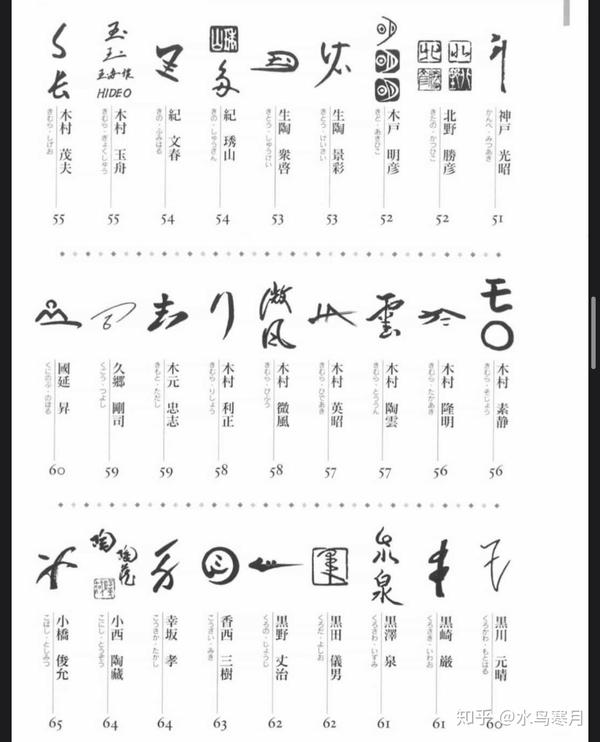 神戸 光昭
かんべ・みつあき
51
北野 勝彦
きたの・かつひこ
52
木戸 明彦
きど・あきひこ
52
生陶 景彩
きとう・けいさい
53
生陶 衆啓
きとう・しゅうけい
53
山
紀 琇山
きの・しゅうざん
54
紀 文春
きの・ふみはる
54
玉
HIDEO
木村 玉舟
きむら・ぎょくしゅう
55
木村 茂夫
きむら・しげお
55
木村 素静
きむら・そじょう
56
木村 隆明
きむら・たかあき
56
雲
木村 陶雲
きむら・とううん
57
木村 英昭
きむら・ひであき
57
微風
木村 微風
きむら・びふう
58
木村 利正
きむら・りしょう
58
木元 忠志
きもと・ただし
59
久郷 剛司
くごう・つよし
59
國延 昇
くにのぶ・のぼる
60
黒川 元晴
くろかわ・もとはる
60
黒崎 厳
くろさき・いわお
61
泉
黒澤 泉
くろさわ・いずみ
61
黒田 儀男
くろだ・よしお
62
黒野 丈治
くろの・じょうじ
62
香西 三樹
こうざい・みき
63
幸坂 孝
こうさか・たかし
64
陶
陶藏
小西 陶藏
こにし・とうぞう
64
小橋 俊允
こばし・としみつ
65
知乎 @水鸟寒月